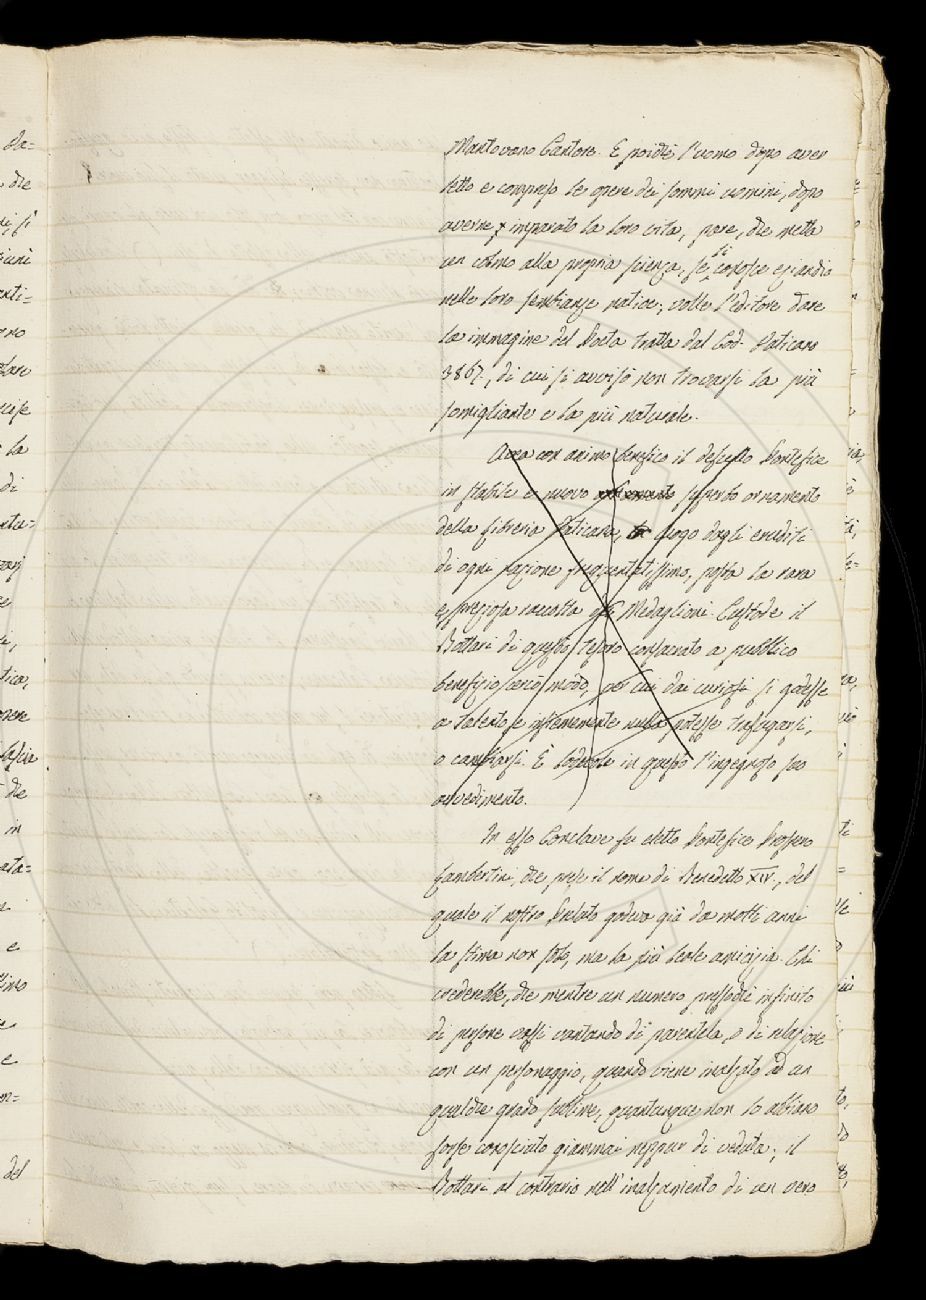 Mantovano Cantore. E poichè l'uomo dopo aver
letto e compreso le opere dei sommi uomini, dopo
averne imparato la loro vita, pare, che metta
un colmo alla propria scienza, se li conosce eziandio
nelle loro sembianze natie; volle l'editore dare
la immagine del Poeta tratta dal Cod. Vaticano
3867, di cui si avvisò non trovarsi la più
somigliante e la più naturale.
Avea con animo benefico il descritto Pontefice
in stabile e nuovo superbo ornamento
della Libreria Vaticana, luogo dagli eruditi
di ogni nazione frequentatissimo, posta la rara
e preziosa raccolta di Medaglioni. Custode il
Bottari di questo tesoro consacrato a pubblico
beneficio cercò modo, per cui dai curiosi si godesse
a talento e nulla potesse trafugarsi,
o cambiarsi. È lodevole in questo l'ingegnoso suo
avvedimento.
In esso Conclave fu eletto Pontefice Prospero
Lambertini, che prese il nome di Benedetto XIV., del
quale il nostro Prelato godeva già da molti anni
la stima non solo, ma la più leale amicizia. Chi
crederebbe, che mentre un numero pressochè infinito
di persone vassi vantando di parentela, o di relazione
con un personaggio, quando viene inalzato ad un
qualche grado sublime, quantunque non lo abbiano
forse conosciuto giammai neppur di veduta; il
Bottari al contrario nell'inalzamento di un vero